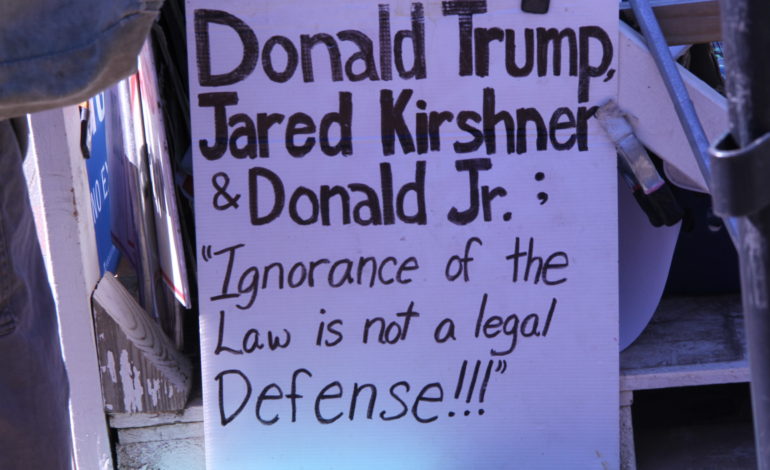 Donald Trump,
Jared Kirshner
& Donald Jr. ;
"Ignorance of the
Law is not a legal
Defense!!!"
NO EX